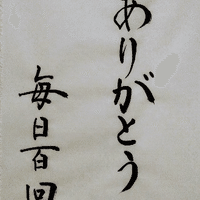 ありがとう
毎日百回